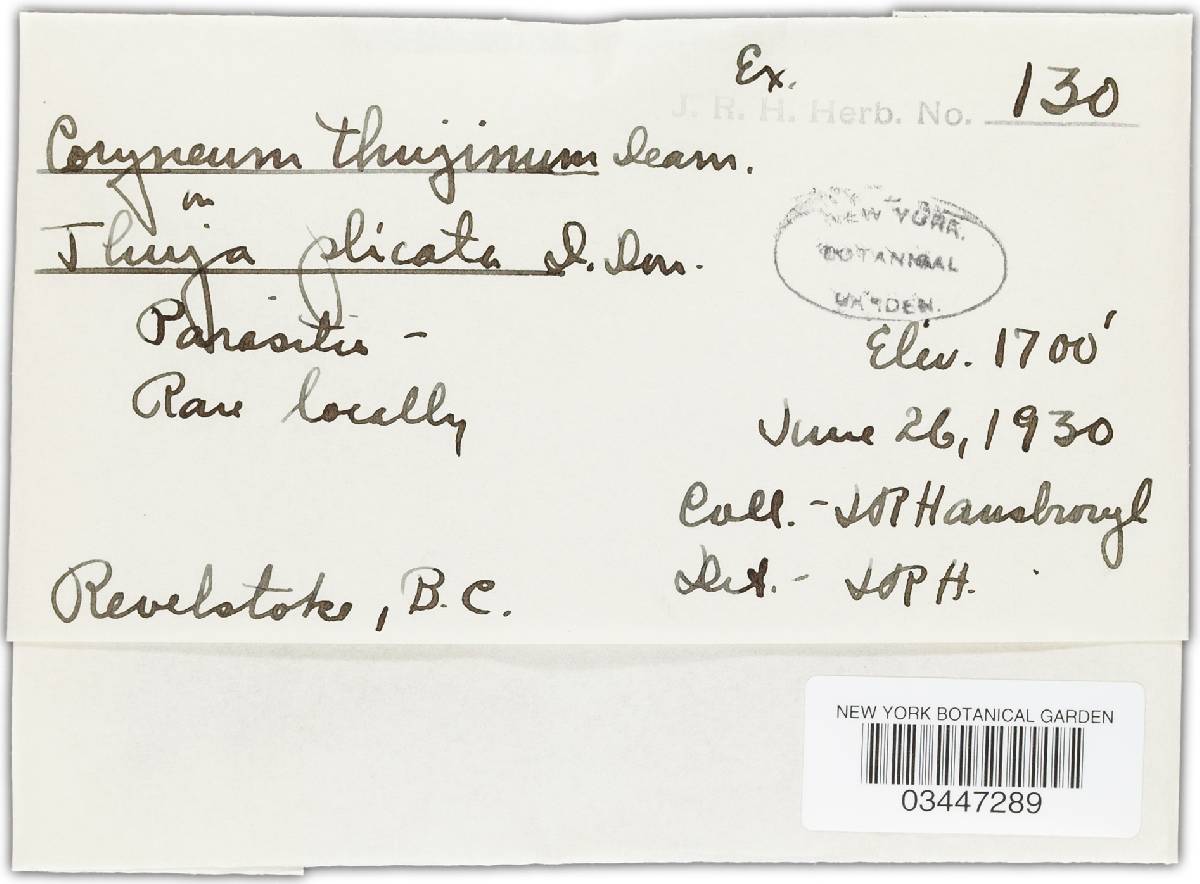 Ex.
J. R. H. Herb. No. 130
Coryneum thujinum Dearn.
on
Thuja plicata D. Don.
NEW YORK
BOTANICAL
GARDEN.
Parasitic -
Elev. 1700'
Rare locally
June 26, 1930
Coll. - JRHansbrough
Revelstoke, B.C.
Det. - JRH.
NEW YORK BOTANICAL GARDEN
03447289